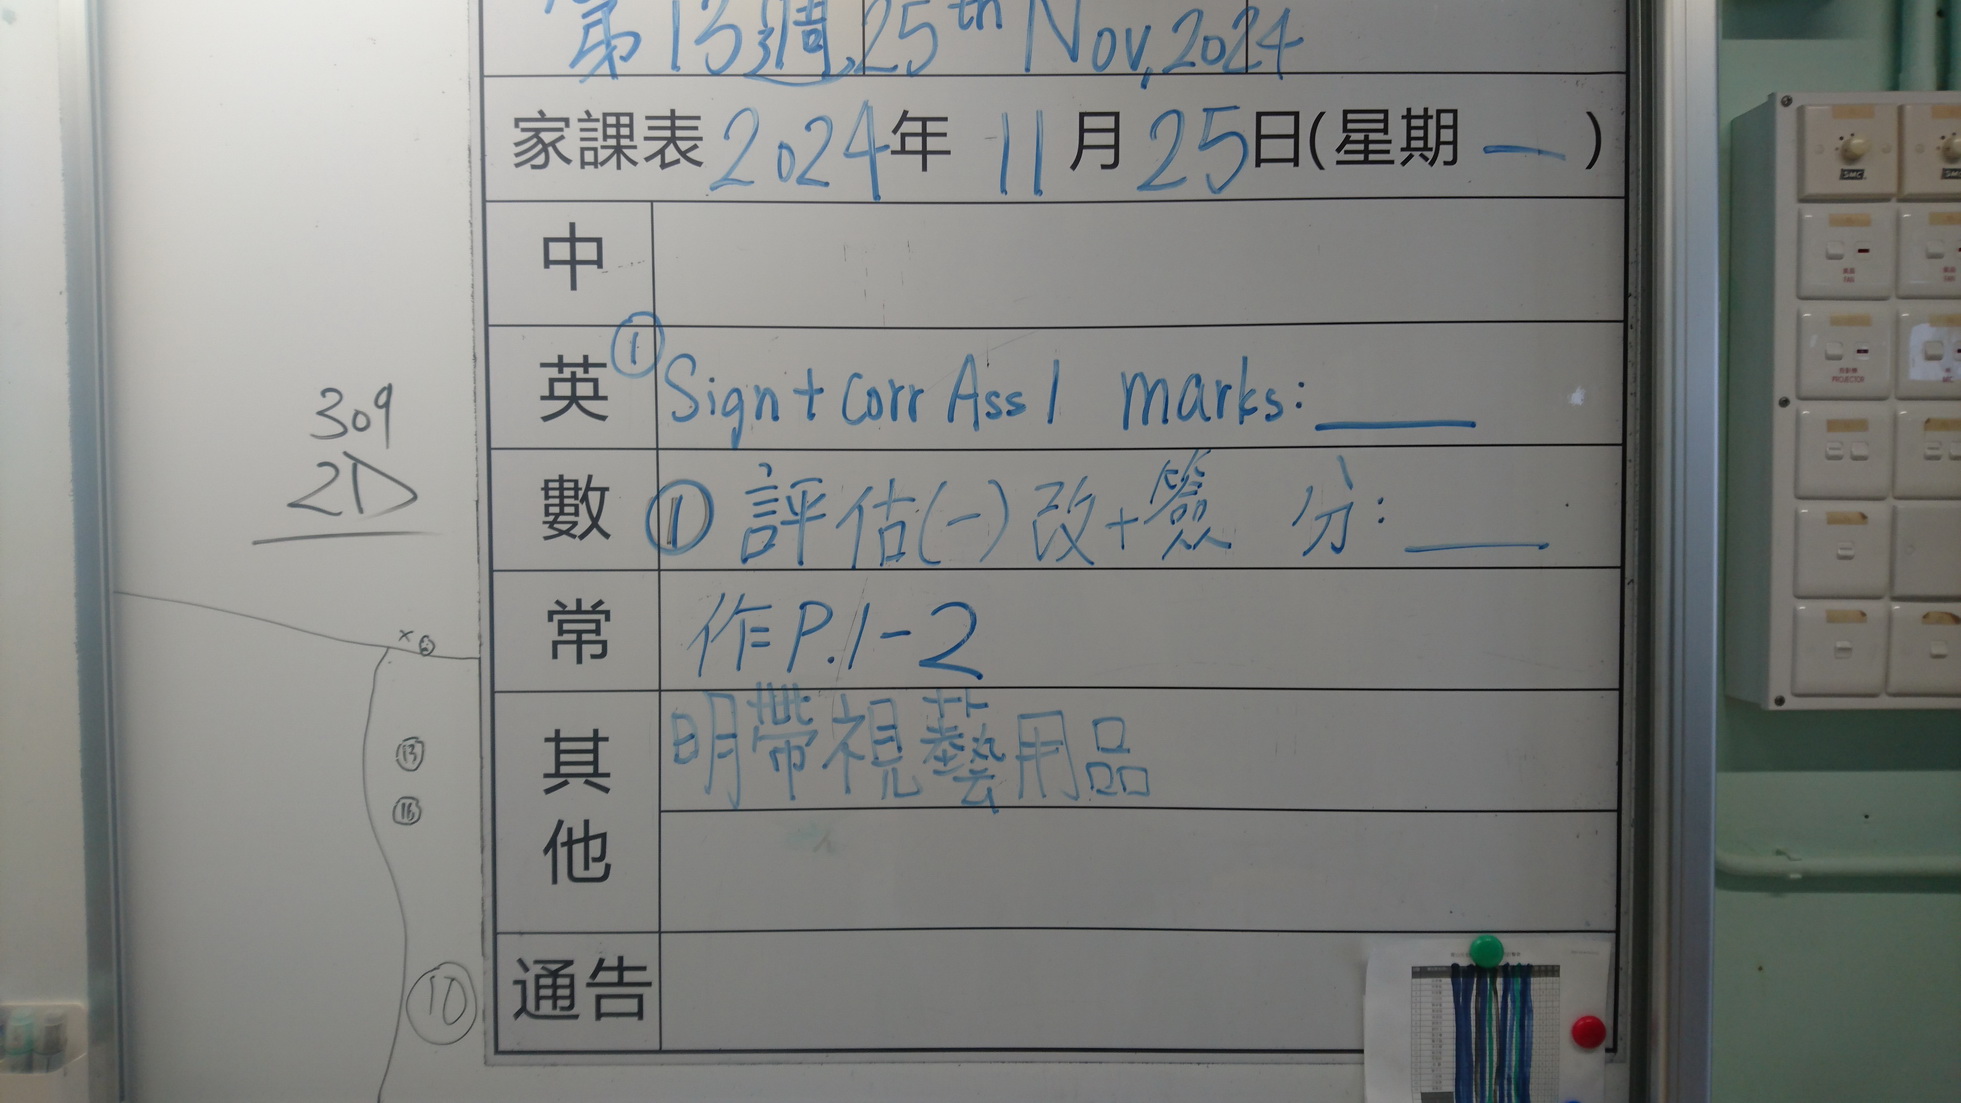 第13週, 25th Nov, 2024
家課表 2024年 11月 25日(星期一)
中
英 ① Sign + Corr Ass 1 marks: ____
數 ① 評估(一)改+簽 分: ____
常 作 P.1-2
其他 明帶視藝用品
通告
309
2D
x
⑬
⑩
SMC
FAN
PROJECTOR